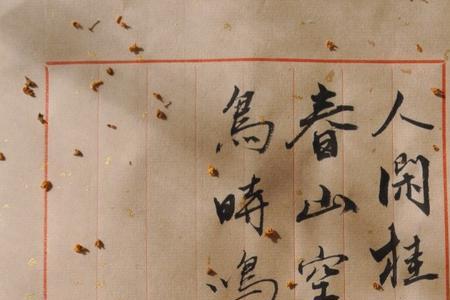 人閑桂
春山空
鳥時鳴